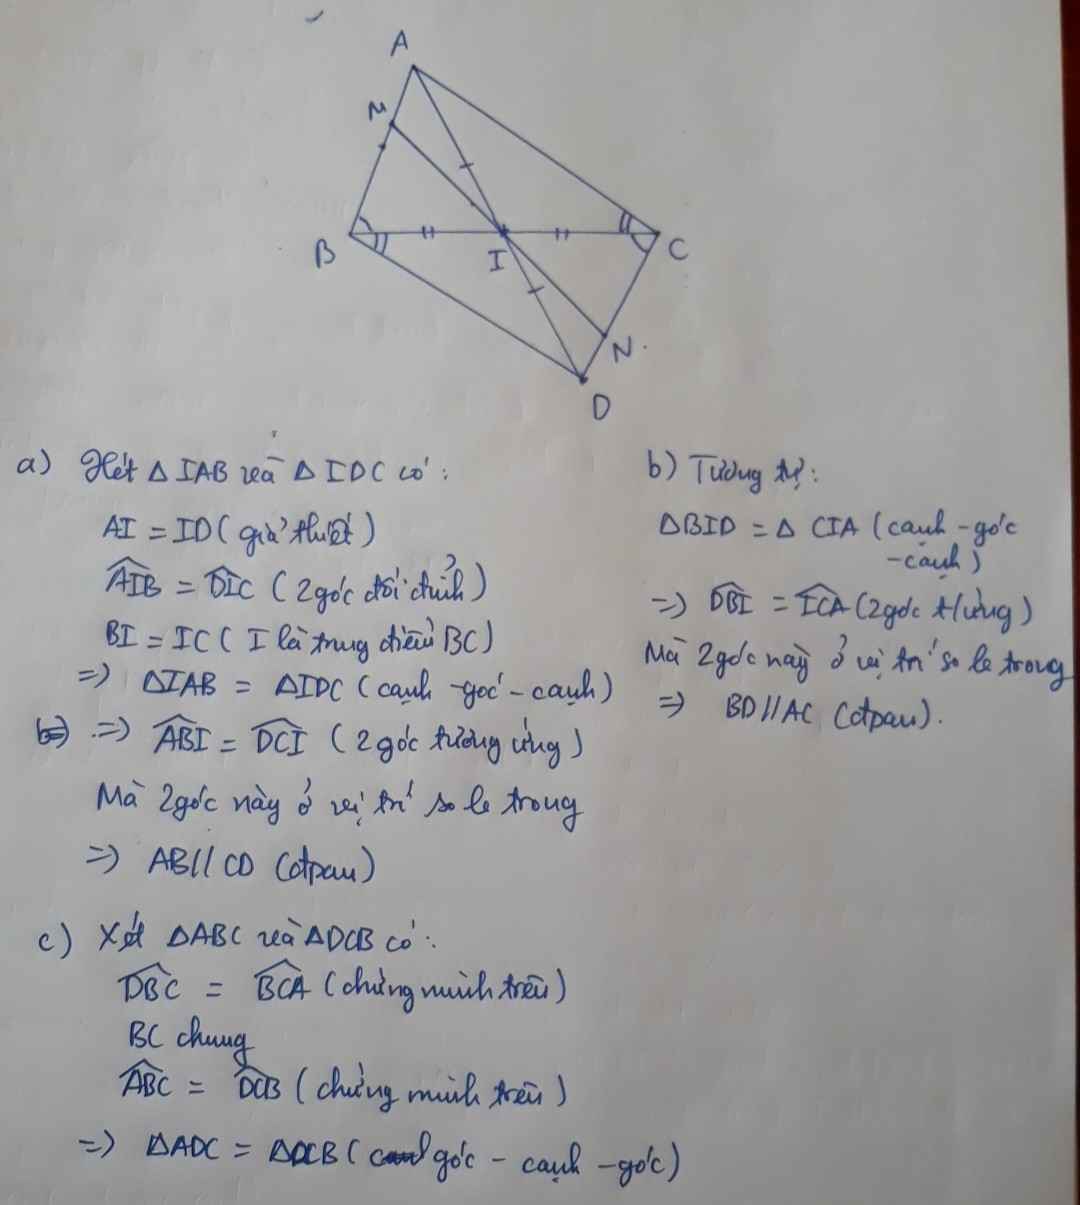 A
M
B
I
C
N.
D
a) Xét Δ IAB và Δ IDC có:
AI = ID (giả thiết)
AIB = DIC (2 góc đối đỉnh)
BI = IC (I là trung điểm BC)
=> ΔIAB = ΔIDC (cạnh - góc - cạnh)
=> ABI = DCI (2 góc tương ứng)
Mà 2 góc này ở vị trí so le trong
=> AB // CD (đpcm)
b) Tương tự:
ΔBID = Δ CIA (cạnh - góc
- cạnh)
=> DBI = ICA (2 góc t/ứng)
Mà 2 góc này ở vị trí so le trong
=> BD // AC (đpcm).
c) Xét ΔABC và ΔDCB có:
DBC = BCA (chứng minh trên)
BC chung
ABC = DCB (chứng minh trên)
=> ΔADC = ΔDCB (góc - cạnh - góc)